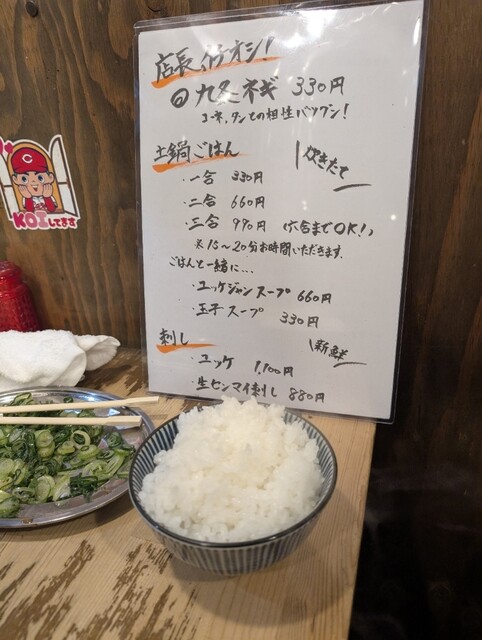 店長イチオシ!
九条ネギ 330円
コーネ、タンとの相性バツグン!
土鍋ごはん 炊きたて
・一合 330円
・二合 660円
・三合 990円 (六合までOK!)
※15〜20分お時間いただきます。
ごはんと一緒に...
・ユッケジャンスープ 660円
・玉子スープ 330円
刺し 新鮮
・ユッケ 1,100円
・生センマイ刺し 880円
C
KOIしてます